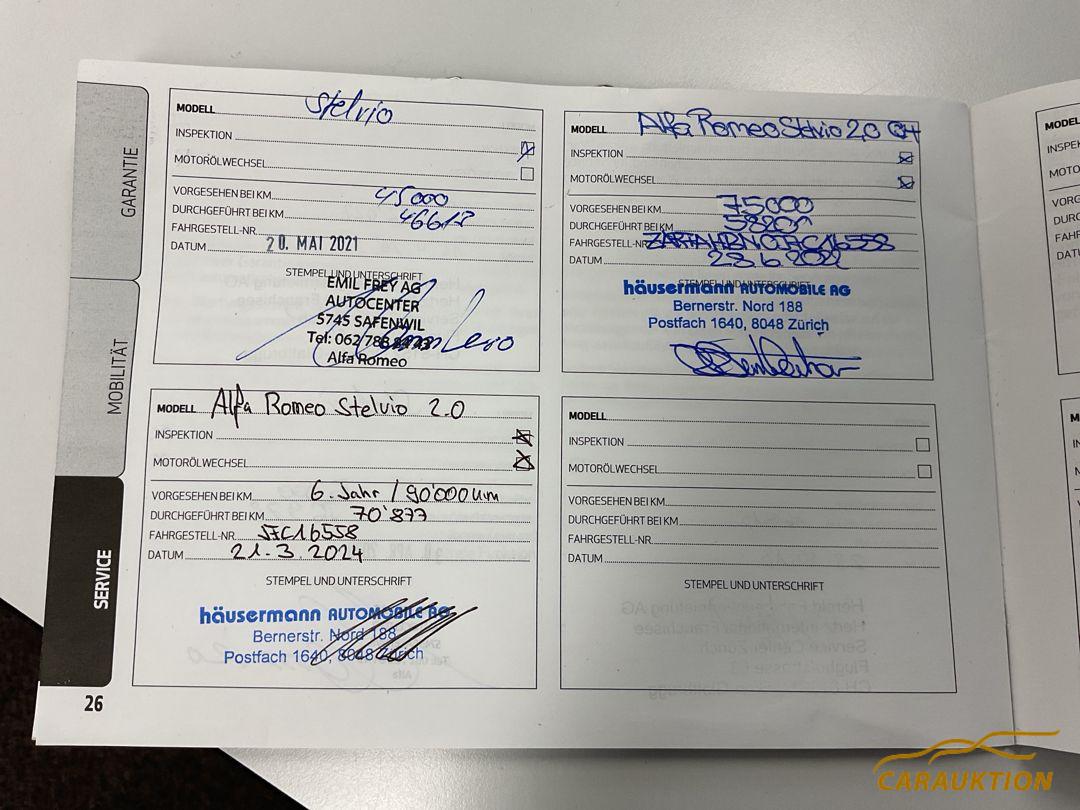 GARANTIE
MOBILITÄT
SERVICE
MODELL Stelvio
INSPEKTION
MOTORÖLWECHSEL
VORGESEHEN BEI KM 45000
DURCHGEFÜHRT BEI KM
FAHRGESTELL-NR.
DATUM 20. MAI 2021
STEMPEL UND UNTERSCHRIFT
EMIL FREY AG
AUTOCENTER
5745 SAFENWIL
Tel: 062 788
Alfa Romeo
MODELL Alfa Romeo Stelvio 2.0
INSPEKTION
MOTORÖLWECHSEL
VORGESEHEN BEI KM 75000
DURCHGEFÜHRT BEI KM
FAHRGESTELL-NR.
DATUM 23.6.2022
STEMPEL UND UNTERSCHRIFT
häusermann AUTOMOBILE AG
Bernerstr. Nord 188
Postfach 1640, 8048 Zürich
MODELL Alfa Romeo Stelvio 2.0
INSPEKTION
MOTORÖLWECHSEL
VORGESEHEN BEI KM 6. Jahr / 90'000
DURCHGEFÜHRT BEI KM 70'877
FAHRGESTELL-NR. J7C16558
DATUM 21.3.2024
STEMPEL UND UNTERSCHRIFT
häusermann AUTOMOBILE AG
Bernerstr. Nord 188
Postfach 1640, 8048 Zürich
MODELL
INSPEKTION
MOTORÖLWECHSEL
VORGESEHEN BEI KM
DURCHGEFÜHRT BEI KM
FAHRGESTELL-NR.
DATUM
STEMPEL UND UNTERSCHRIFT
26
CARAUKTION